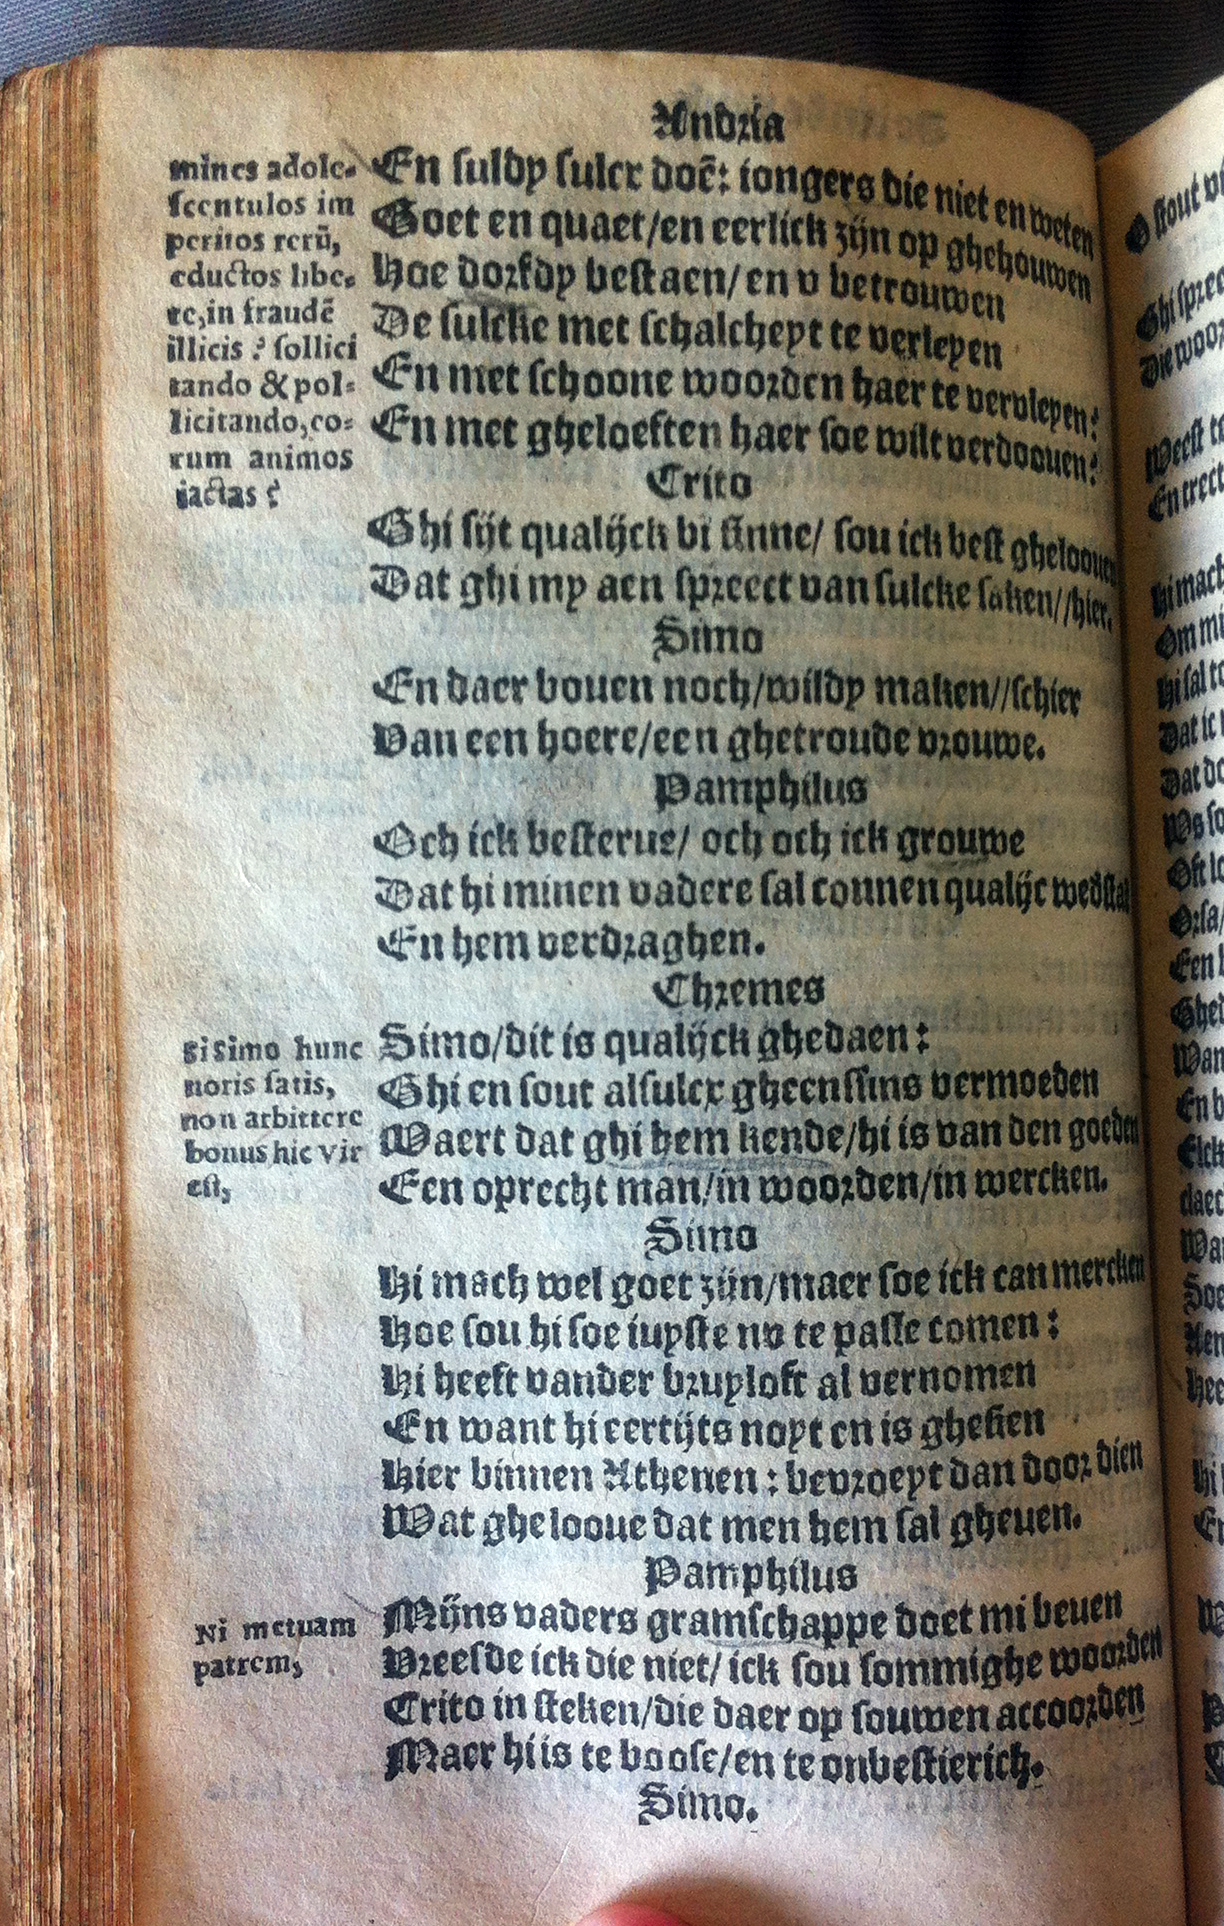 Andria
En suldy sulcx doē: iongers die niet en weten
Goet en quaet/en eerlick zijn op ghehouwen
Hoe dorfdy bestaen/en v betrouwen
De sulcke met schalcheyt te verleyen
En met schoone woorden haer te vervleyen:
En met gheloeften haer soe wilt verdoouen:
Crito
Ghi sijt qualijck bi sinne/ sou ick best gheloouen
Dat ghi my aen spreect van sulcke saken//hier.
Simo
En daer bouen noch/wildy maken//schier
Van een hoere/een ghetroude vrouwe.
Pamphilus
Och ick besterue/ och och ick grouwe
Dat hi minen vadere sal connen qualijc wedstal
En hem verdraghen.
Chremes
Simo/dit is qualijck ghedaen:
Ghi en sout alsulcx gheenssins vermoeden
Waert dat ghi hem kende/hi is van den goeden
Een oprecht man/in woorden/in wercken.
Simo
Hi mach wel goet zijn/maer soe ick can mercken
Hoe sou hi soe iuyste nv te passe comen:
Hi heeft vander bruyloft al vernomen
En want hi eertijts noyt en is ghesien
Hier binnen Athenen: bevroeyt dan door dien
Wat ghelooue dat men hem sal gheuen.
Pamphilus
Mijns vaders gramschappe doet mi beuen
Vreesde ick die niet/ ick sou sommighe woorden
Crito in steken/die daer op souwen accoorden
Maer hi is te boose/en te onbestierich.
Simo.
mines adole-
scentulos im
peritos rerū,
eductos libe-
re, in fraudē
illicis ? sollici
tando & pol-
licitando, co-
rum animos
iactas ?
Si Simo hunc
noris satis,
non arbittere
bonus hic vir
est,
Ni metuam
patrem,
O stout
Ghi spree
Die woor
Weest
En trect
Hi mach
Om
Hi sal
Dat ic
Dat
Een
Wan
En
Elck
Hi